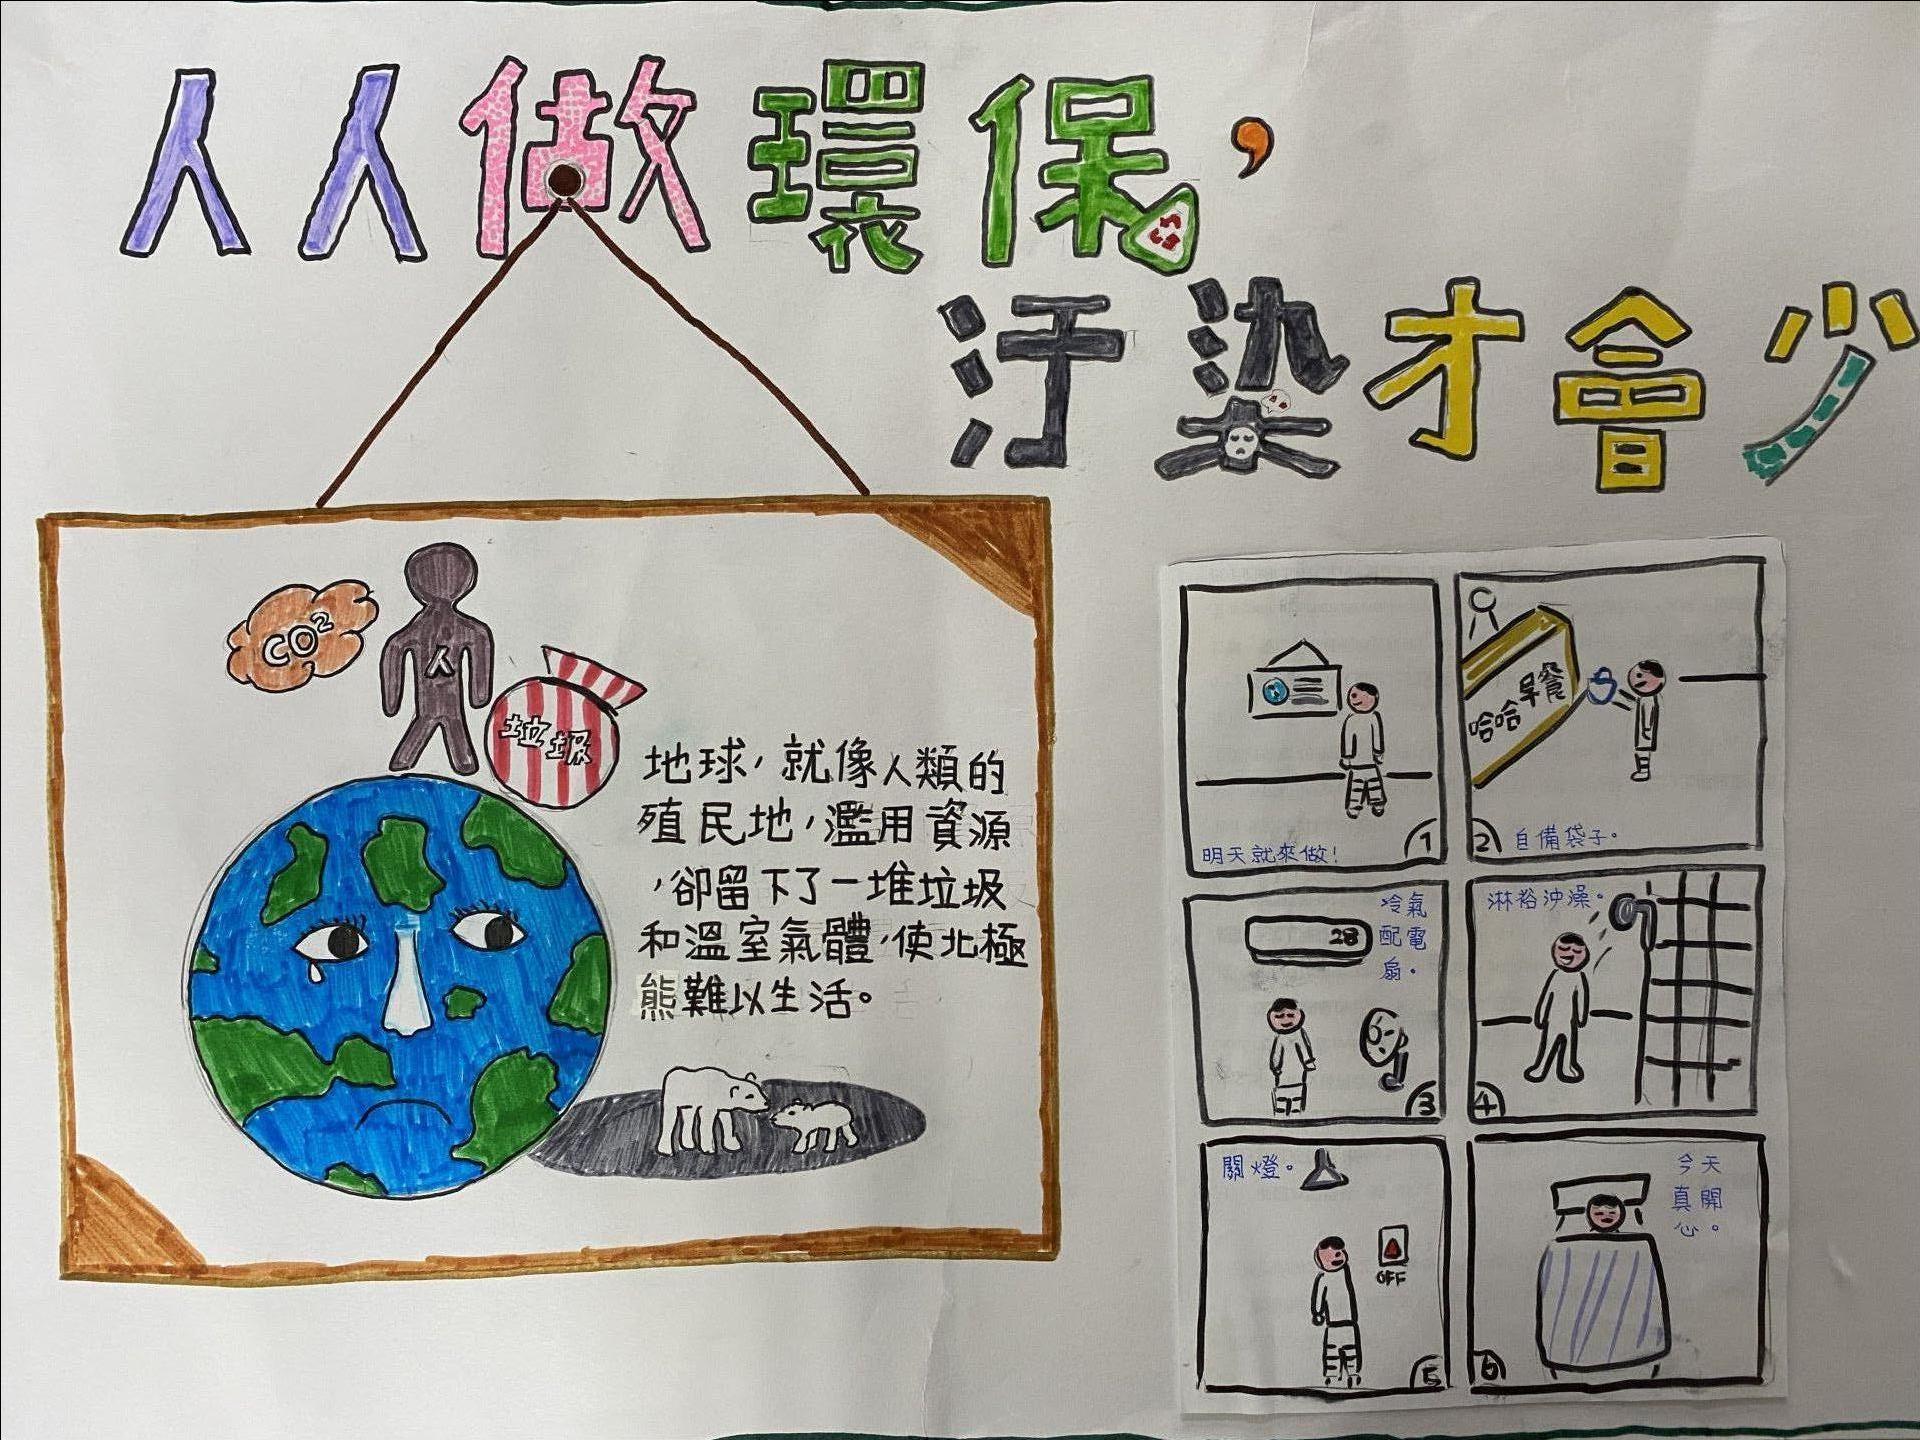 人人做環保，
汙染才會少
CO2
人
垃圾
地球，就像人類的
殖民地，濫用資源
，卻留下了一堆垃圾
和溫室氣體，使北極
熊難以生活。
明天就來做！
1
哈哈早餐
2
自備袋子。
冷氣
配電
扇。
28
3
淋裕沖澡。
4
關燈。
OFF
5
今天
真開
心。
6